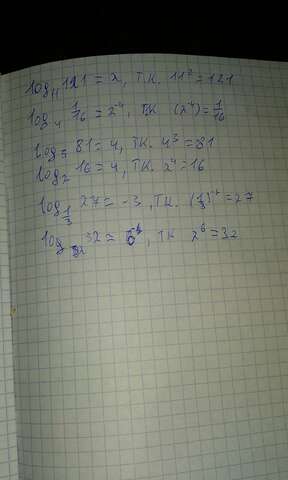 log₁₁ 121 = 2, т.к. 11² = 121
log₄ 1/16 = 2⁻⁴, т.к (2⁻⁴) = 1/16
log₃ 81 = 4, т.к. 4³ = 81
log₂ 16 = 4, т.к. 2⁴ = 16
27 = -3, т.к. = 27
log 32 = , т.к 2⁶ = 32